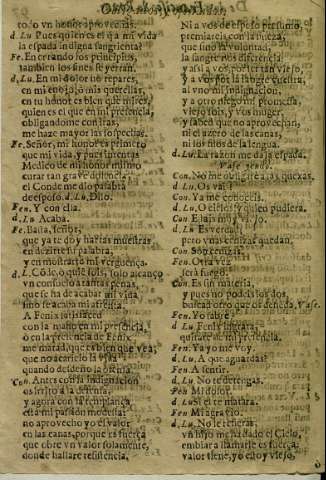 to, o vn honor aprovechas.
d. Lu Pues quien es el q̃ a mi vida
la espada indigna sangrienta?
Fe. En cerrando los principios,
tambien los fines se yerran.
d. Lu. En mi dolor no repares,
en mi enojo, ò mis querellas,
en tu honor es bien que mires,
quien es el que en mi presencia,
obligandome con iras,
me haze mayor las sospechas.
Fe. Señor, mi honor es primero
que mi vida, y pues intentas
Medico de mi honor mismo
curar tan grave dolencia,
el Conde me dio palabra
de esposo. d. Lu, Dilo.
Fen. Y con ella.
d. Lu Acaba.
Fe. Basta, señor,
que ya te doy hartas muestras
en dezirte su palabra,
y en mostrarte mi verguença.
d. L. Cõde, ò quiẽ sois, solo alcanço
vn consuelo a tantas penas,
que se ha de acabar mi vida
sino se acaba mi afrenta.
A Fenix satisfaced
con la mano en mi presencia,
ò en la presencia de Fenix
me matad, que es bien que vea,
que no acaricio la vida
quando defiendo la ofensa.
Con. Antes con la indignacion
os irrito a la defensa,
y agora con la templança
esta mi passion modesta:
no aprovecho yo el valor
en las canas, porque es fuerça
que obre vn valor solamente,
donde hallare resistencia,
Ni a vos de esposo presumo,
premiareis con la fineza,
que sino la voluntad,
la sangre nos diferencia:
y assi a vos por ser tan viejo,
y a vos por la sangre vuestra,
al vno mi indignacion,
y a otro niego mi promessa
viejo sois, y vos muger,
y sabed que no aprovechan,
ni el azero de las canas,
ni los filos de la lengua.
d. Lu. La razon me da la espada.
Vase Fenix
Con. No me obligueis a las quexas.
d. Lu. Os vais?
Con. Ya me conoceis.
d. Lu. O el cielo, y quien pudiera.
Con Estais muy viejo.
d. Lu Es verdad,
pero vnas cenizas quedan.
Con. Son cenizas.
Fen. Otra vez
serà fuego.
Con. Es sin materia,
y pues no podeis los dos,
buscad otro que os defienda, Vase.
Fen. Yo sabrè
d. Lu Fenix ingrata,
quitate de mi presencia.
Fen. Ya yo me voy.
d. Lu. A que aguardas?
Fen. A sentir.
d. Lu No te detengas.
Fen Mi dolor
d. Lu Si el te matara.
Fen Mi agravio.
d. Lu. No le refieras.
vn hijo me ha dado el Cielo,
embiar a llamarle es fuerça:
valor tiene, yo estoy viejo,